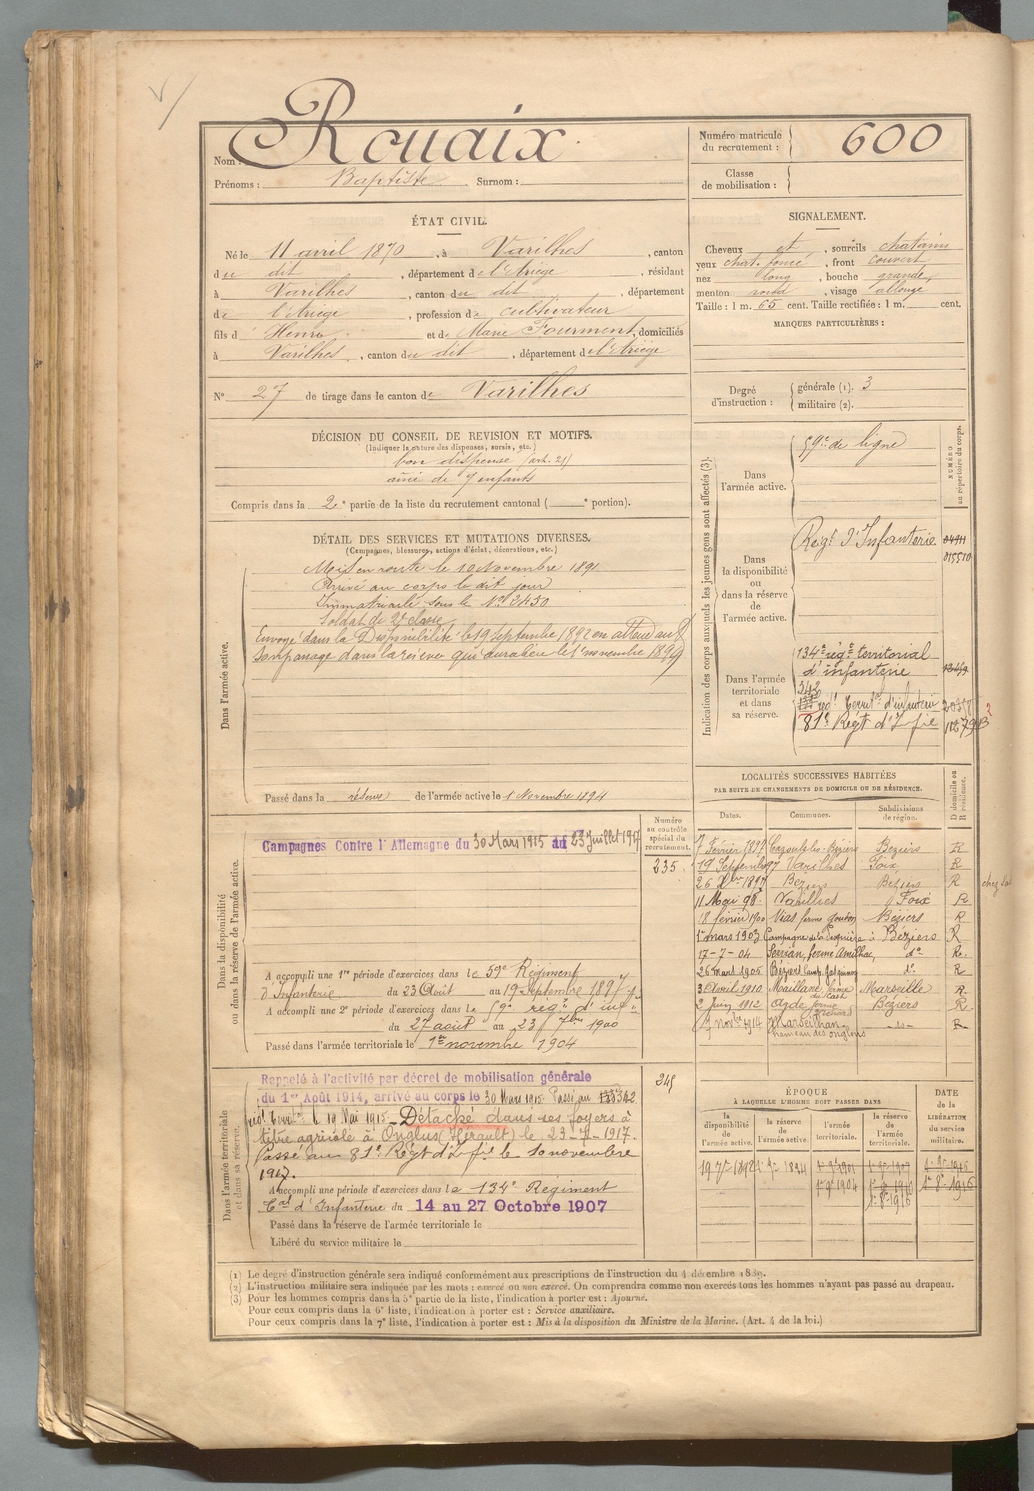 Nom : Rouaix
Prénoms : Baptiste. Surnom :
Numéro matricule du recrutement : 600
Classe de mobilisation :
ÉTAT CIVIL.
Né le 11 avril 1870, à Varilhes, canton
du dit, département de l'Ariège, résidant
à Varilhes, canton du dit, département
de l'Ariège, profession de cultivateur
fils d' Henri et de Marie Fourment, domiciliés
à Varilhes, canton du dit, département de l'Ariège
N° 27 de tirage dans le canton de Varilhes
SIGNALEMENT.
Cheveux et, sourcils chatains
yeux chat. foncé, front couvert
nez long, bouche grande,
menton rond, visage allongé
Taille : 1 m. 65 cent. Taille rectifiée : 1 m. cent.
MARQUES PARTICULIÈRES :
Degré d'instruction : générale (1). 3
militaire (2).
DÉCISION DU CONSEIL DE REVISION ET MOTIFS.
(Indiquer la nature des dispenses, sursis, etc.)
bon dispensé (art. 21)
ainé de 7 enfants
Compris dans la 2e partie de la liste du recrutement cantonal ( e portion).
DÉTAIL DES SERVICES ET MUTATIONS DIVERSES.
(Campagnes, blessures, actions d'éclat, décorations, etc.)
Dans l'armée active.
Mis en route le 10 Novembre 1891
Arrivé au corps le dit jour
Immatriculé sous le No 2450
Soldat de 2e classe
Envoyé dans la Disponibilité le 19 Septembre 1892 en attendant
son passage dans la réserve qui aura lieu le 1 novembre 1894
Passé dans la réserve de l'armée active le 1 Novembre 1894
Indication des corps auxquels les jeunes gens sont affectés (3).
NUMÉRO au répertoire du corps.
Dans l'armée active.
59e de ligne
Dans la disponibilité ou dans la réserve de l'armée active.
Regt d'Infanterie
015510
Dans l'armée territoriale et dans sa réserve.
134e rég. territorial
d'infanterie
342
régt territ. d'infanterie
81e Régt d'Infie
LOCALITÉS SUCCESSIVES HABITÉES
PAR SUITE DE CHANGEMENTS DE DOMICILE OU DE RÉSIDENCE.
Dates. Communes. Subdivisions de région. D domicile ou R résidence.
7 Février 1897 Cazouls-les-Béziers Béziers R
19 Septembre 97 Varilhes Foix R
26 Xbre 1897 Béziers Béziers R
11 Mai 98 Varilhes Foix R
18 février 1900 Vias ferme Béziers R
1er mars 1903 Campagne de la à Béziers R
17-7-04 Servian, ferme Amilhac, do R.
26 mars 1905 Béziers Camp. do R
3 Avril 1910 Maillane, ferme Marseille R.
2 Juin 1912 Agde ferme Béziers R
nov 1914 Marseillan hameau des onglous -do- R
Dans la disponibilité ou dans la réserve de l'armée active.
Numéro au contrôle spécial du recrutement.
335
Campagnes Contre l'Allemagne du 30 Mars 1915 au 23 Juillet 1917
A accompli une 1re période d'exercices dans le 59e Régiment
d'Infanterie du 23 Août au 19 Septembre 1897
A accompli une 2e période d'exercices dans le 59e regt d'infie
du 27 août au 23 7bre 1900
Passé dans l'armée territoriale le 1er novembre 1904
Dans l'armée territoriale et dans sa réserve.
245
Rappelé à l'activité par décret de mobilisation générale
du 1er Août 1914, arrivé au corps le 30 Mars 1915. Passé au 342
régt territ. le 19 Mai 1915. Détaché dans ses foyers à
titre agricole à Onglous (Hérault) le 23-7-1917.
Passé au 81e Régt d'Infie le 10 novembre
1917.
A accompli une période d'exercices dans le 134e Régiment
tal d'Infanterie du 14 au 27 Octobre 1907
Passé dans la réserve de l'armée territoriale le
Libéré du service militaire le
ÉPOQUE
À LAQUELLE L'HOMME DOIT PASSER DANS
la disponibilité de l'armée active. la réserve de l'armée active. l'armée territoriale. la réserve de l'armée territoriale.
DATE de la LIBÉRATION du service militaire.
19 7bre 1892 1 9bre 1894 1er 9bre 1904
(1) Le degré d'instruction générale sera indiqué conformément aux prescriptions de l'instruction du 4 décembre 1889.
(2) L'instruction militaire sera indiquée par les mots : exercé ou non exercé. On comprendra comme non exercés tous les hommes n'ayant pas passé au drapeau.
(3) Pour les hommes compris dans la 5e partie de la liste, l'indication à porter est : Ajourné.
Pour ceux compris dans la 6e liste, l'indication à porter est : Service auxiliaire.
Pour ceux compris dans la 7e liste, l'indication à porter est : Mis à la disposition du Ministre de la Marine. (Art. 4 de la loi.)